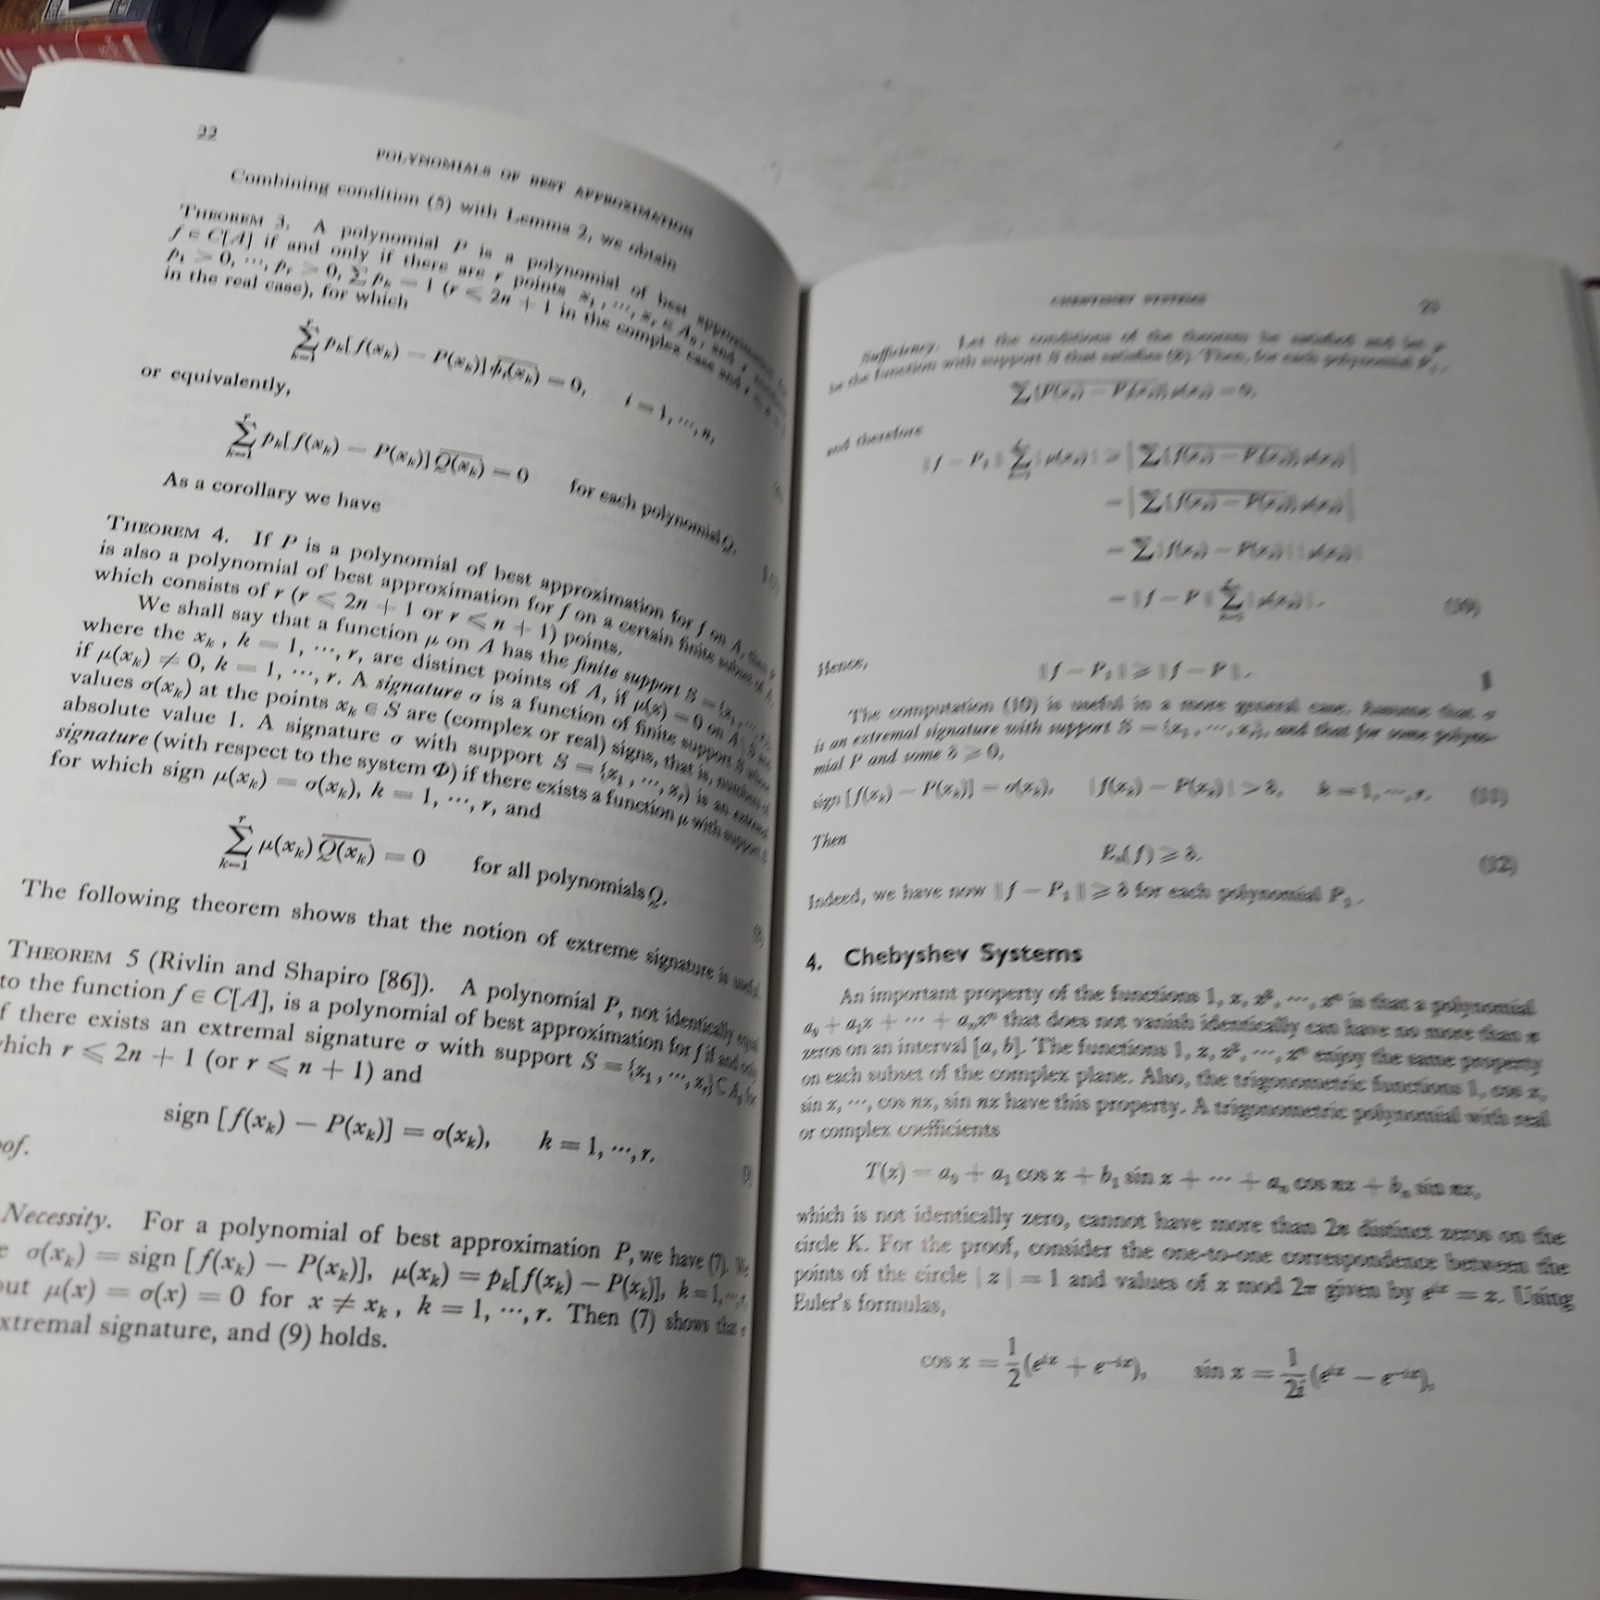 22
POLYNOMIALS OF BEST APPROXIMATION
Combining condition (5) with Lemma 2, we obtain
THEOREM 3. A polynomial P is a polynomial of best
f ∈ C[A] if and only if there are r points x₁, ···, xᵣ ∈ A₀, and
p₁ > 0, ···, pᵣ > 0, ∑ pₖ = 1 (r ⩽ 2n + 1 in the complex case and
in the real case), for which
∑ₖ₌₁ʳ pₖ[f(xₖ) − P(xₖ)] \overline{ϕᵢ(xₖ)} = 0, i = 1, ···, n,
or equivalently,
∑ₖ₌₁ʳ pₖ[f(xₖ) − P(xₖ)] \overline{Q(xₖ)} = 0 for each polynomial Q.
As a corollary we have
THEOREM 4. If P is a polynomial of best approximation for f on A,
is also a polynomial of best approximation for f on a certain finite subset of A,
which consists of r (r ⩽ 2n + 1 or r ⩽ n + 1) points.
We shall say that a function μ on A has the finite support S = {x₁, ···,
where the xₖ, k = 1, ···, r, are distinct points of A, if μ(x) = 0 on A \ S and
if μ(xₖ) ≠ 0, k = 1, ···, r. A signature σ is a function of finite support S whose
values σ(xₖ) at the points xₖ ∈ S are (complex or real) signs, that is, numbers of
absolute value 1. A signature σ with support S = {x₁, ···, xᵣ} is an extremal
signature (with respect to the system Φ) if there exists a function μ with support S
for which sign μ(xₖ) = σ(xₖ), k = 1, ···, r, and
∑ₖ₌₁ʳ μ(xₖ) \overline{Q(xₖ)} = 0 for all polynomials Q.
The following theorem shows that the notion of extreme signature is useful.
THEOREM 5 (Rivlin and Shapiro [86]). A polynomial P, not identically equal
to the function f ∈ C[A], is a polynomial of best approximation for f if and only
f there exists an extremal signature σ with support S = {x₁, ···, xᵣ} ⊂ A₀ for
hich r ⩽ 2n + 1 (or r ⩽ n + 1) and
sign [f(xₖ) − P(xₖ)] = σ(xₖ), k = 1, ···, r.
9)
oof.
Necessity. For a polynomial of best approximation P, we have (7). We
e σ(xₖ) = sign [f(xₖ) − P(xₖ)], μ(xₖ) = pₖ[f(xₖ) − P(xₖ)], k = 1, ···, r,
out μ(x) = σ(x) = 0 for x ≠ xₖ, k = 1, ···, r. Then (7) shows that σ
xtremal signature, and (9) holds.
CHEBYSHEV SYSTEMS
23
Sufficiency. Let the conditions of the theorem be satisfied and let μ
be the function with support S that satisfies (8). Then, for each polynomial P₁,
and therefore
(10)
Hence,
‖f − P₁‖ ⩾ ‖f − P‖.
The computation (10) is useful in a more general case. Assume that σ
is an extremal signature with support S = {x₁, ···, xᵣ}, and that for some polyno-
mial P and some δ ⩾ 0,
sign [f(xₖ) − P(xₖ)] = σ(xₖ), |f(xₖ) − P(xₖ)| > δ, k = 1, ···, r. (11)
Then
Eₙ(f) ⩾ δ. (12)
Indeed, we have now ‖f − P₁‖ ⩾ δ for each polynomial P₁.
4. Chebyshev Systems
An important property of the functions 1, x, x², ···, xⁿ is that a polynomial
a₀ + a₁x + ··· + aₙxⁿ that does not vanish identically can have no more than n
zeros on an interval [a, b]. The functions 1, z, z², ···, zⁿ enjoy the same property
on each subset of the complex plane. Also, the trigonometric functions 1, cos x,
sin x, ···, cos nx, sin nx have this property. A trigonometric polynomial with real
or complex coefficients
T(x) = a₀ + a₁ cos x + b₁ sin x + ··· + aₙ cos nx + bₙ sin nx,
which is not identically zero, cannot have more than 2n distinct zeros on the
circle K. For the proof, consider the one-to-one correspondence between the
points of the circle |z| = 1 and values of x mod 2π given by eⁱˣ = z. Using
Euler's formulas,
cos x = 1/2 (eⁱˣ + e⁻ⁱˣ), sin x = 1/2i (eⁱˣ − e⁻ⁱˣ),